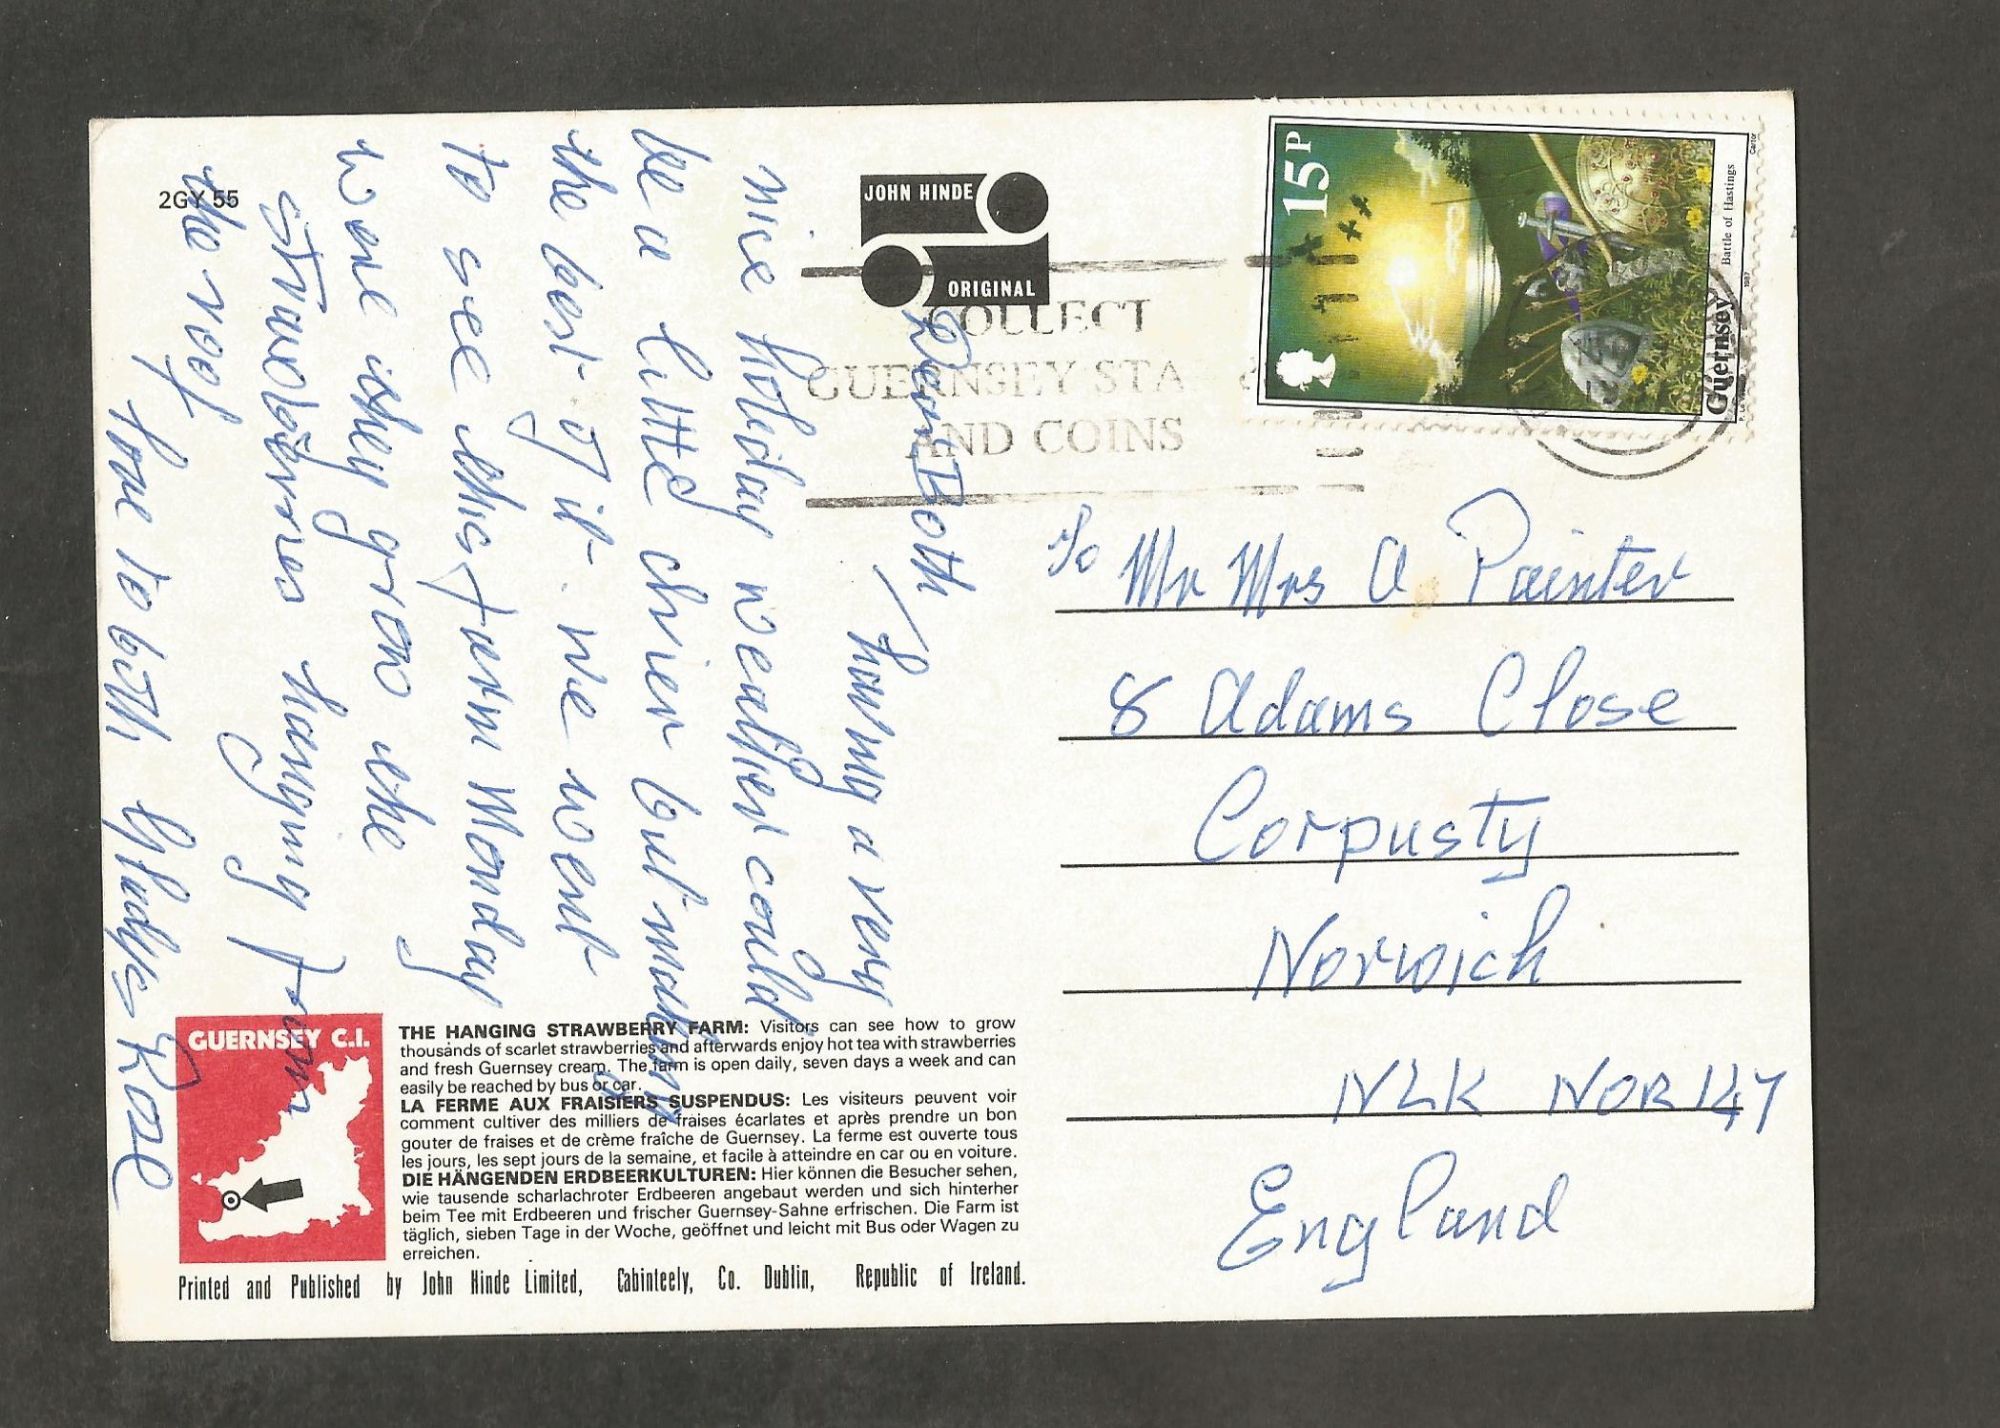 2GY 55
JOHN HINDE
ORIGINAL
Dear Both
having a very
nice holiday weather could
be a little drier but making
the best of it. we went
to see this farm Monday
were they grow the
strawberries hanging from
the roof
love to both Gladys Rose
COLLECT
GUERNSEY STA
AND COINS
15P
Battle of Hastings
Guernsey
1987
Cartor
To Mr Mrs A Painter
8 Adams Close
Corpusty
Norwich
NLK NOR 147
England
GUERNSEY C.I.
THE HANGING STRAWBERRY FARM: Visitors can see how to grow
thousands of scarlet strawberries and afterwards enjoy hot tea with strawberries
and fresh Guernsey cream. The farm is open daily, seven days a week and can
easily be reached by bus or car.
LA FERME AUX FRAISIERS SUSPENDUS: Les visiteurs peuvent voir
comment cultiver des milliers de fraises écarlates et après prendre un bon
gouter de fraises et de crème fraîche de Guernsey. La ferme est ouverte tous
les jours, les sept jours de la semaine, et facile à atteindre en car ou en voiture.
DIE HÄNGENDEN ERDBEERKULTUREN: Hier können die Besucher sehen,
wie tausende scharlachroter Erdbeeren angebaut werden und sich hinterher
beim Tee mit Erdbeeren und frischer Guernsey-Sahne erfrischen. Die Farm ist
täglich, sieben Tage in der Woche, geöffnet und leicht mit Bus oder Wagen zu
erreichen.
Printed and Published by John Hinde Limited, Cabinteely, Co. Dublin, Republic of Ireland.